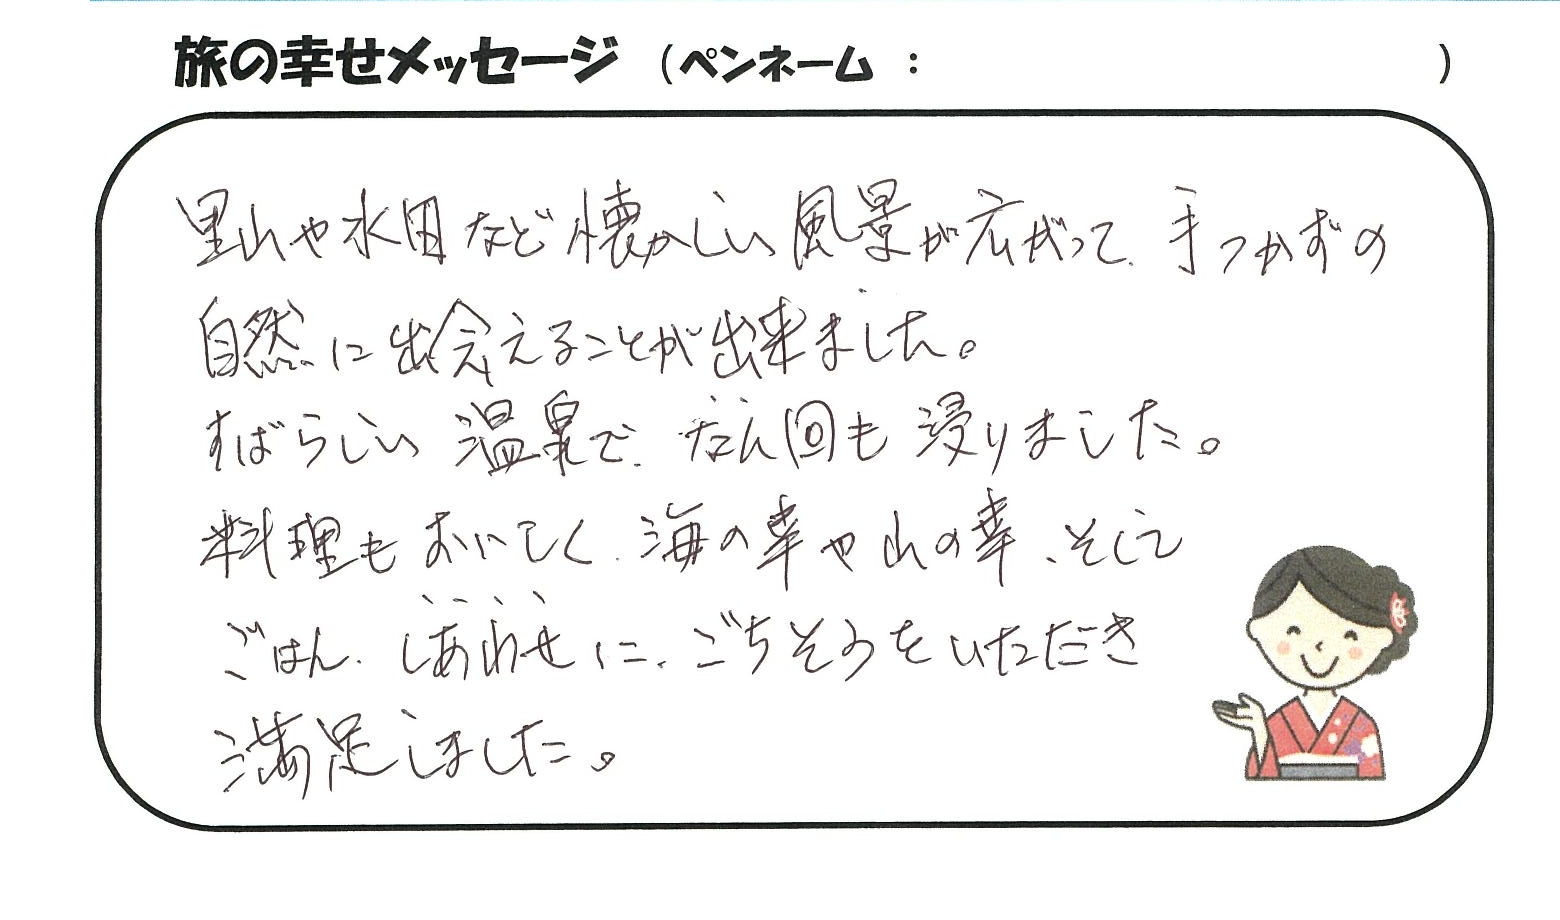 旅の幸せメッセージ (ペンネーム : )
里山や水田など懐かしい風景が広がって、手つかずの
自然に出会えることが出来ました。
すばらしい温泉で、なん回も浸りました。
料理もおいしく、海の幸や山の幸、そして
ごはん、しあわせに、ごちそうをいただき
満足しました。